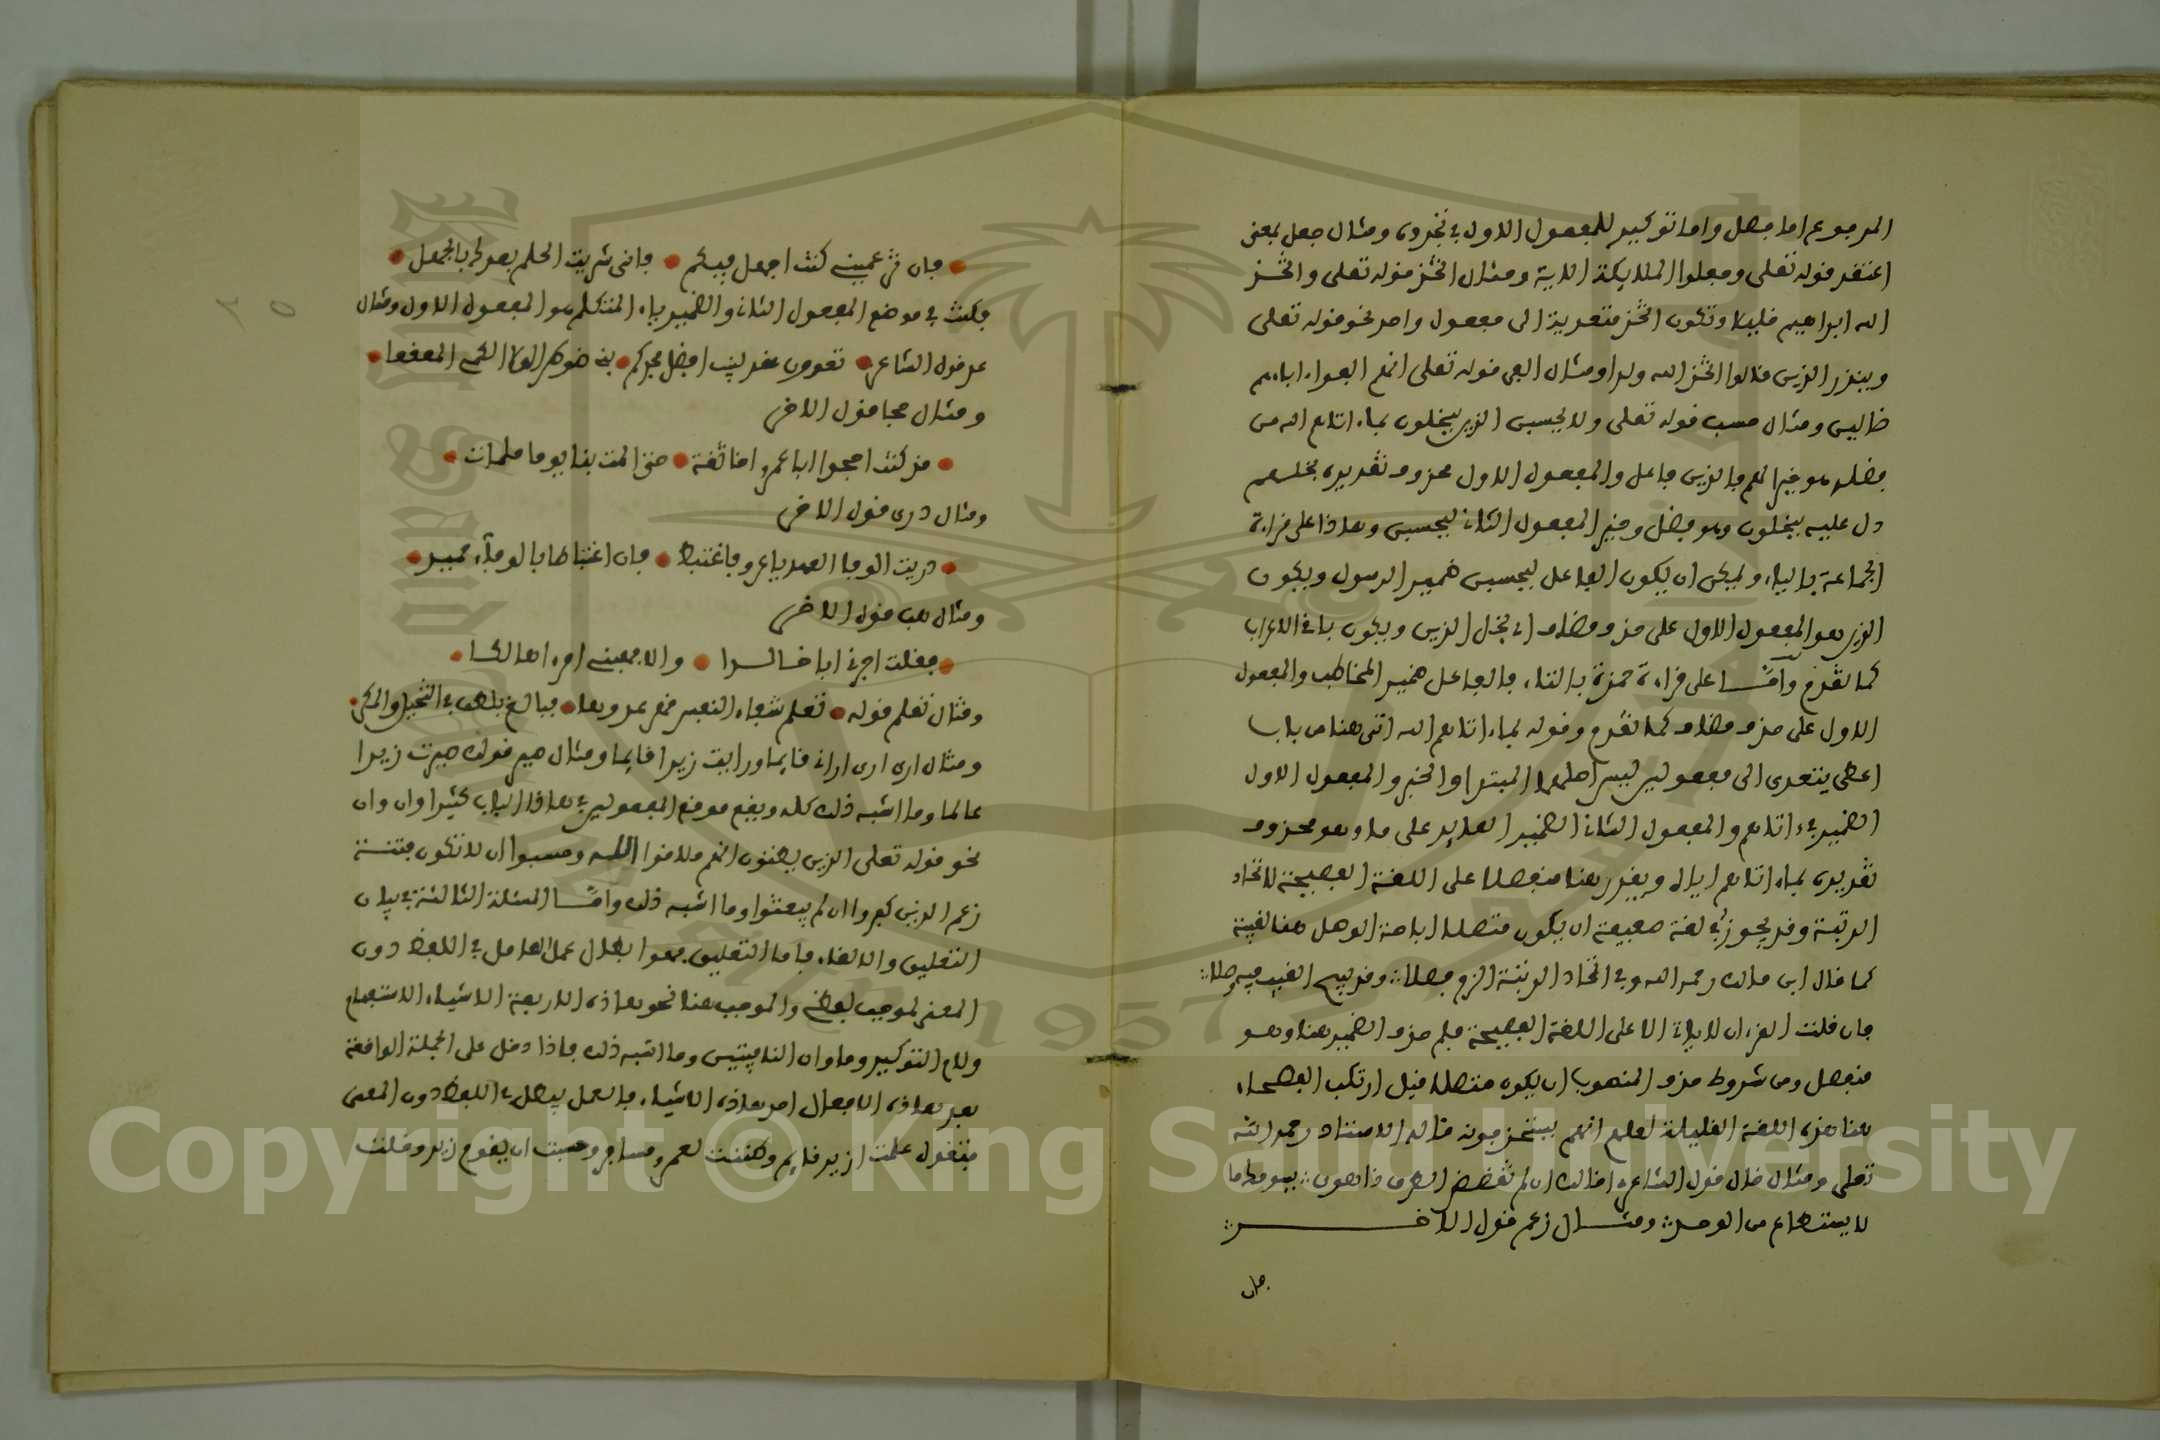 المرفوع اما فصل واما توكيد للمفعول الاول في تجدوه ومثال جعل بمعنى
اعتقد قوله تعلى وجعلوا الملايكة الاية ومثال اتخذ قوله تعلى واتخذ
الله ابراهيم خليلا وتكون اتخذ متعدية الى مفعول واحد نحو قوله تعلى
وينذر الذين قالوا اتخذ الله ولدا ومثال الفى قوله تعلى انهم الفوا اباءهم
ضالين ومثال حسب قوله تعلى ولا يحسبن الذين يبخلون بما اتاهم الله من
فضله هو خيرا لهم فالذين فاعل والمفعول الاول محذوف تقديره بخلهم
دل عليه يبخلون وهو فصل وخيرا المفعول الثاني ليحسبن وهاذا على قراءة
الجماعة بالياء ويمكن ان يكون الفاعل ليحسبن ضمير الرسول ويكون
الذين هو المفعول الاول على حذف مضاف اي بخل الذين ويكون باقي الاعراب
كما تقدم وامــا على قراءة حمزة بالتاء فالفاعل ضمير المخاطب والمفعول
الاول على حذف مضاف كما تقدم وقوله بما اتاهم الله اتى هنا من باب
اعطى يتعدى الى مفعولين ليس اصلهما المبتدا والخبر والمفعول الاول
الضمير في اتاهم والمفعول الثاني الضمير العايد على ما وهو محذوف
تقديره بما اتاهم اياه ويقدر هنا منفصلا على اللغة الفصيحة لاتحاد
الرتبة وقد يجوز في لغة ضعيفة ان يكون متصلا اباحة الوصل هنا لغيبة
كما قال ابن مالك رحمه الله وفي اتحاد الرتبة الزم فصلا وقد يبيح الغيب فيه وصلا
فان قلت القرءان لا ياتي الا على اللغة الفصيحة فلم حذف الضمير هنا وهو
منفصل ومن شروط حذف المنصوب ان يكون متصلا قيل ارتكب الفصحاء
هنا هذه اللغة القليلة لعلمهم انهم يحذفونه قاله الاستاذ رحمه الله
تعلى ومثال خال قول الشاعر اخالك ان لم تغضض الطرف ذا هوى يسومك ما
لا يستطاع من الوجد ومثــال زعم قول الاخــر
فان
فان تزعميني كنت اجهل فيكم فانى شريت الحلم بعدك بالجهل
فكنت في موضع المفعول الثاني والضمير ياء المتكلم هو المفعول الاول ومثال
عد قول الشاعر تعدون عقر النيب افضل مجدكم بني ضوطرى لولا الكمي المقنعا
ومثال حجا قول الاخر
قد كنت احجوا ابا عمرو اخا ثقة حتى المت بنا يوما ملمات
ومثال درى قول الاخر
دريت الوفا العهد يا عرو فاغتبط فان اغتباطا بالوفاء حميد
ومثال هب قول الاخر
فقلت اجرني ابا خالــدا والا فهبني امرءا هالكــا
ومثال تعلم قوله تعلم شفاء النفس قهر عدوها فبالغ بلطف في التحيل والمكر
ومثال ارى ارى اراني قايما ورايت زيدا قايما ومثال صير قولك صيرت زيدا
عالما وما اشبه ذلك كله ويقع موقع المفعولين في هاذا الباب كثيرا ان وان
نحو قوله تعلى الذين يظنون انهم ملاقوا الله وحسبوا ان لا تكون فتنة
زعم الذين كفروا ان لم يبعثوا وما اشبه ذلك وامــا المسئلة الثالثة في بيان
التعليق والالغاء فاما التعليق فهو ابطال عمل العامل في اللفظ دون
المعنى لموجب لفظي والموجب هنا نحو هاذه الاربعة الاشياء الاستفهام
ولام التوكيد وما وان النافيتين وما اشبه ذلك فاذا دخل على الجملة الواقعة
بعد هاذه الافعال احد هاذه الاشياء فالعمل يبطل في اللفظ دون المعنى
فتقول علمت ازيد قايم وظننت لعمرو مسافر وحسبت ان يقوم زيد وخلت